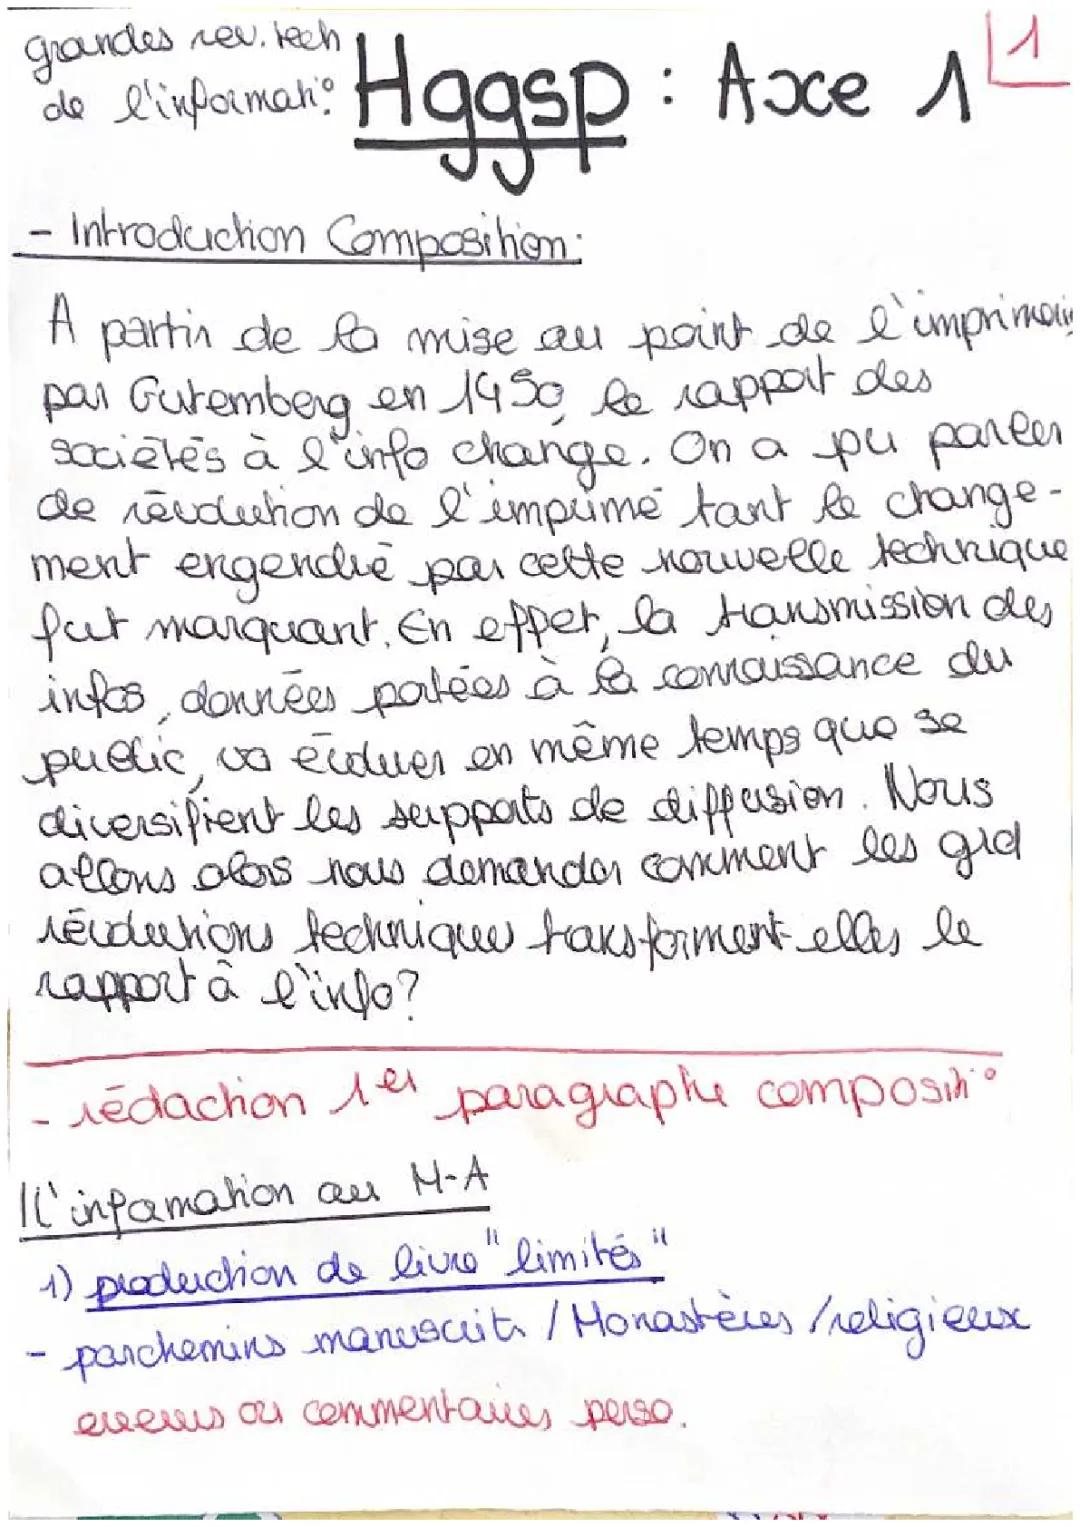 grandes rev. tech
de l'informati°
Hggsp : Axe 1
1
- Introduction Composition:
A partir de la mise au point de l'imprimerie
par Gutemberg en 1450, le rapport des
sociétés à l'info change. On a pu parler
de révolution de l'imprimé tant le change-
ment engendré par cette nouvelle technique
fut marquant. En effet, la transmission des
infos, données portées à la connaissance du
public, va évoluer en même temps que se
diversifient les supports de diffusion. Nous
allons alors nous demander comment les grd
révolutions techniques transforment-elles le
rapport à l'info?
- rédaction 1er paragraphe composit°
I L'information au M-A
1) production de livre "limités"
- parchemins manuscrits / Monastères / religieux
erreurs ou commentaires perso.